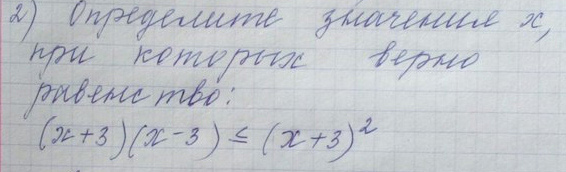 2) Определите значения х,
при которых верно
равенство:
(x+3)(x-3) ≤ (x+3)²